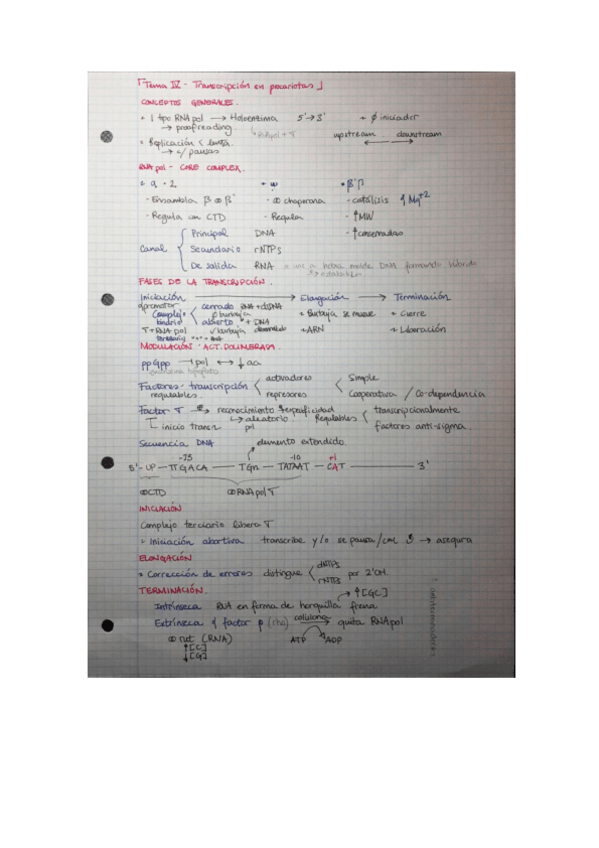 「Tema IV - Transcripción en procariotas」
CONCEPTOS GENERALES.
1 tipo RNApol → Holoenzima 5'→3' + ∅ iniciador
→ proofreading RNApol + σ upstream downstream
Replicación < lenta. ←→
→ c/ pausas
RNApol - CORE COMPLEX.
α · 2 + ω β'β
- Ensambla β ∞ β' - ∞ chaperona - catálisis Mg+2
- Regula con CTD - Regula - ↑MW
- ↑conservadas
Canal Principal DNA
Secundario rNTPs
De salida RNA se une a hebra molde DNA formando híbrido
→ estables
FASES DE LA TRANSCRIPCIÓN.
Iniciación → Elongación → Terminación
∅promotor cerrado RNA + dsDNA + Burbuja se mueve + Cierre
Complejo ∅ burbuja
binario abierto + DNA + ARN + Liberación
σ + RNApol burbuja
MODULACIÓN - ACT. POLIMERASA.
ppGpp ⊣ pol ↔ ↓ aa
Factores - transcripción activadores Simple
regulables. represores Cooperativa / Co-dependencia
Factor σ → reconocimiento + especificidad transcripcionalmente
→ aleatorio. Regulables
inicio transc pol factores anti-sigma.
Secuencia DNA elemento extendido.
-35 -10 +1
5' - UP - TTGACA — TGn — TATAAT — CAT — 3'
∞CTD ∞RNApol σ
INICIACIÓN
Complejo terciario libera σ
Iniciación abortiva transcribe y/o se pausa → asegura
ELONGACIÓN
Corrección de errores distingue dNTPs
rNTPs por 2'OH.
TERMINACIÓN. → ↑[GC]
Intrínseca RNA en forma de horquilla frena
Extrínseca factor ρ (rho) colisiona → quita RNApol
∞ rut (RNA) ATP ADP
↑[C]
↓[G]